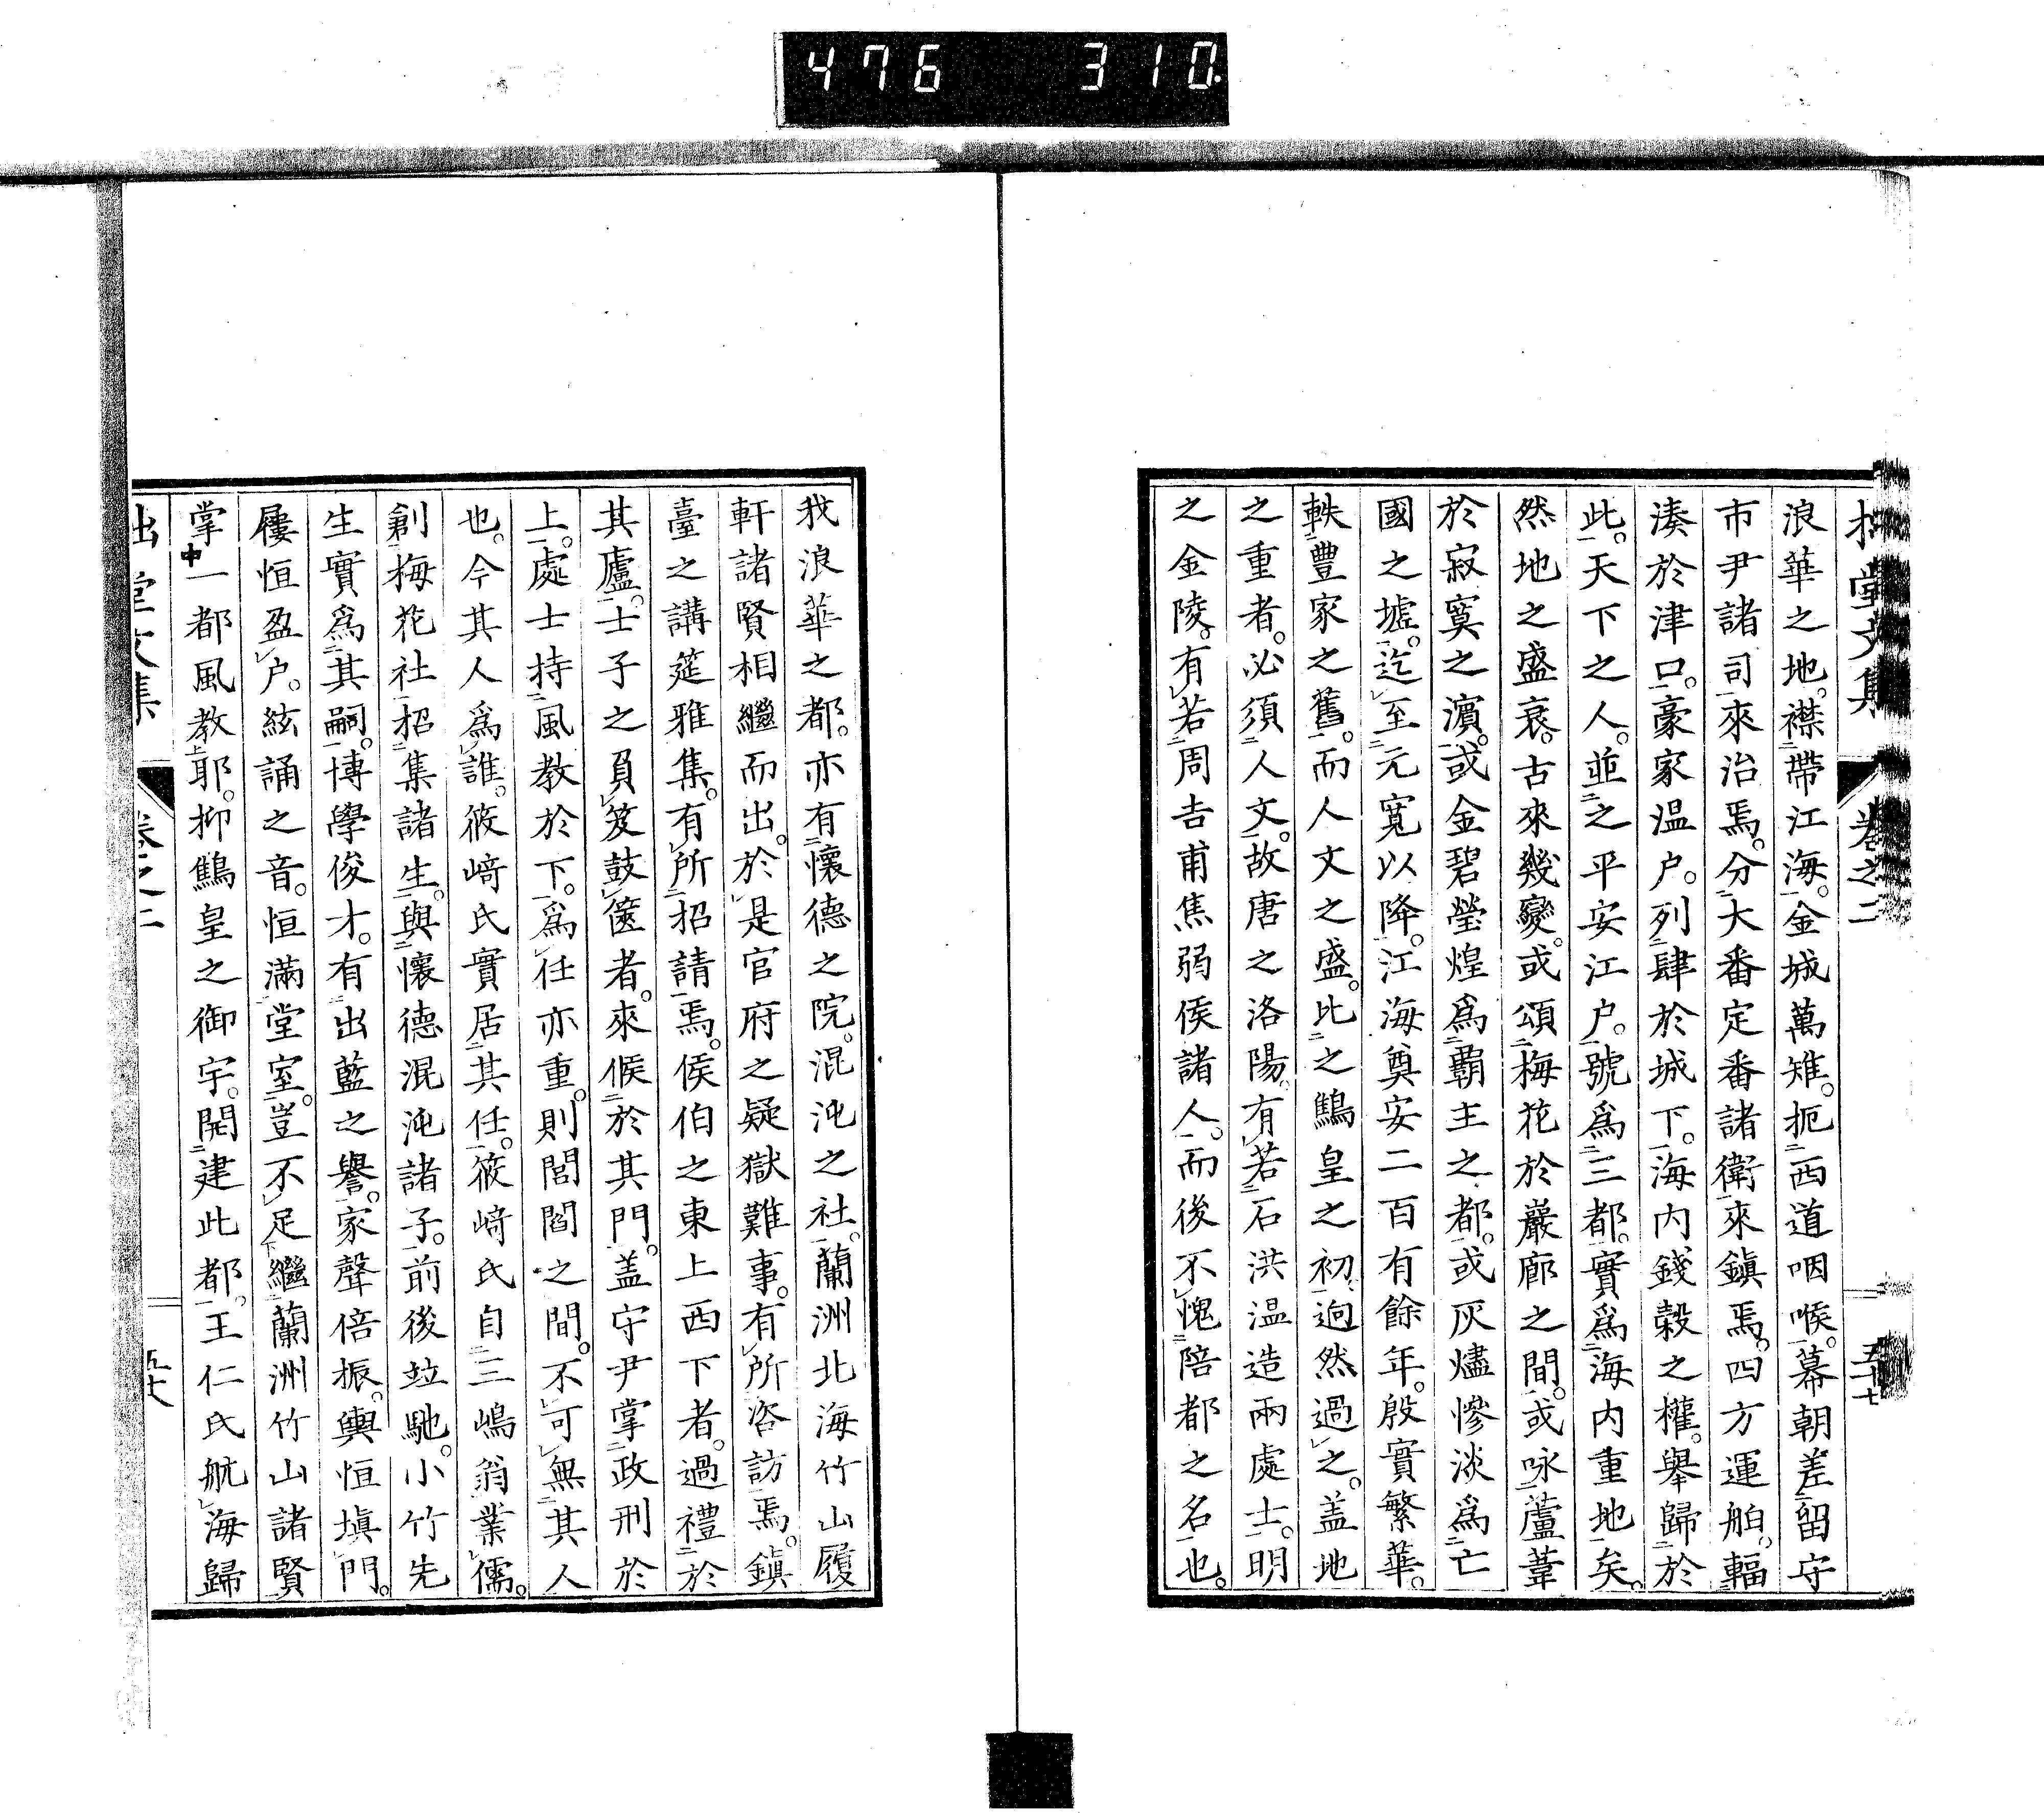 476 310
堂文集 卷之二 五十七
浪華之地。襟帶江海。金城萬雉。扼西道咽喉。幕朝差留守
市尹諸司來治焉。分大番定番諸衛來鎭焉。四方運舶。輻
湊於津口。豪家温户。列肆於城下。海内錢穀之權。舉歸於
此。天下之人。並之平安江户。號爲三都。實爲海内重地矣。
然地之盛衰。古來幾變。或頌梅花於巖廊之間。或咏蘆葦
於寂寞之濵。或金碧瑩煌爲覇主之都。或灰燼慘淡爲亡
國之墟。迄至元寛以降。江海奠安二百有餘年。殷實繁華。
軼豐家之舊。而人文之盛。比之鷦皇之初。逈然過之。盖地
之重者。必須人文。故唐之洛陽。有若石洪温造兩處士。明
之金陵。有若周吉甫焦弱侯諸人。而後不愧陪都之名也。
我浪華之都。亦有懷德之院。混沌之社。蘭洲北海竹山履
軒諸賢相繼而出。於是官府之疑獄難事。有所咨訪焉。鎭
臺之講筵雅集。有所招請焉。侯伯之東上西下者。過禮於
其廬。士子之負笈鼓篋者。來候於其門。盖守尹掌政刑於
上。處士持風教於下。爲任亦重。則閭閻之間。不可無其人
也。今其人爲誰。筱﨑氏實居其任。筱﨑氏自三嶋翁業儒。
創梅花社招集諸生。與懷德混沌諸子。前後竝馳。小竹先
生實爲其嗣。博學俊才。有出藍之譽。家聲倍振。輿恒塡門。
屨恒盈户。絃誦之音。恒滿堂室。豈不足繼蘭洲竹山諸賢
掌一都風教耶。抑鷦皇之御宇。開建此都。王仁氏航海歸
堂文集 卷之二